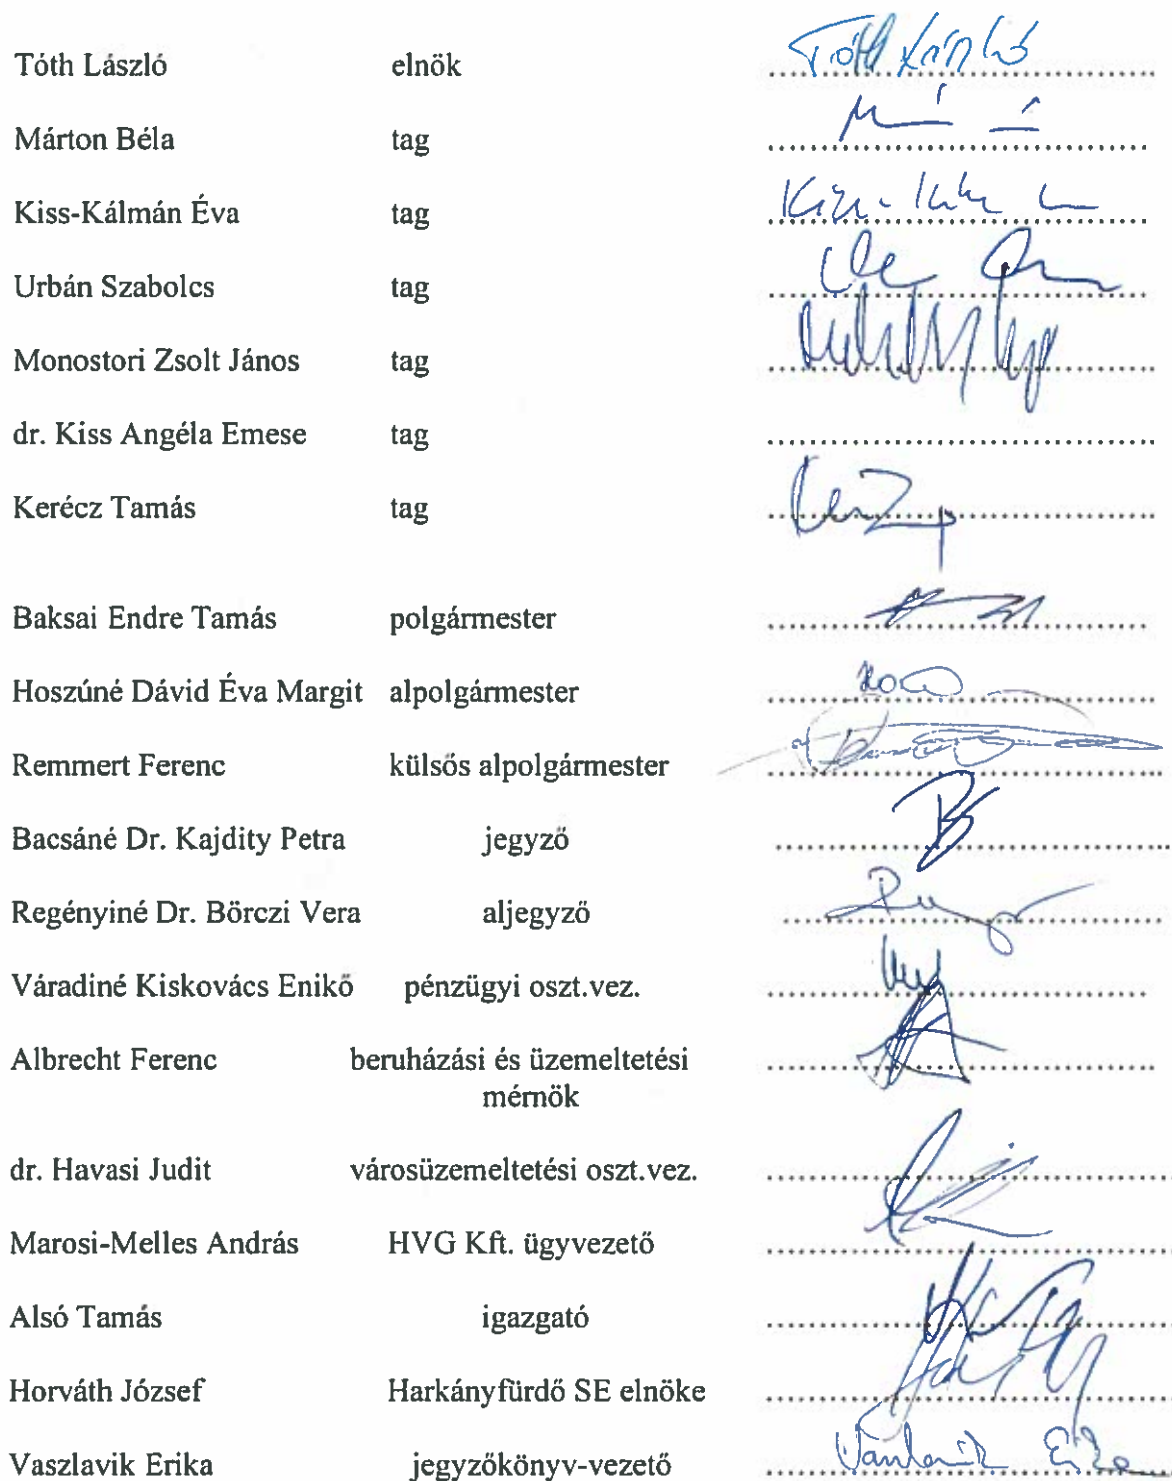 Tóth László elnök Tóth László
Márton Béla tag
Kiss-Kálmán Éva tag
Urbán Szabolcs tag
Monostori Zsolt János tag
dr. Kiss Angéla Emese tag
Kerécz Tamás tag
Baksai Endre Tamás polgármester
Hoszúné Dávid Éva Margit alpolgármester
Remmert Ferenc külsős alpolgármester
Bacsáné Dr. Kajdity Petra jegyző
Regényiné Dr. Börczi Vera aljegyző
Váradiné Kiskovács Enikő pénzügyi oszt.vez.
Albrecht Ferenc beruházási és üzemeltetési
mérnök
dr. Havasi Judit városüzemeltetési oszt.vez.
Marosi-Melles András HVG Kft. ügyvezető
Alsó Tamás igazgató
Horváth József Harkányfürdő SE elnöke
Vaszlavik Erika jegyzőkönyv-vezető Vaszlavik Erika